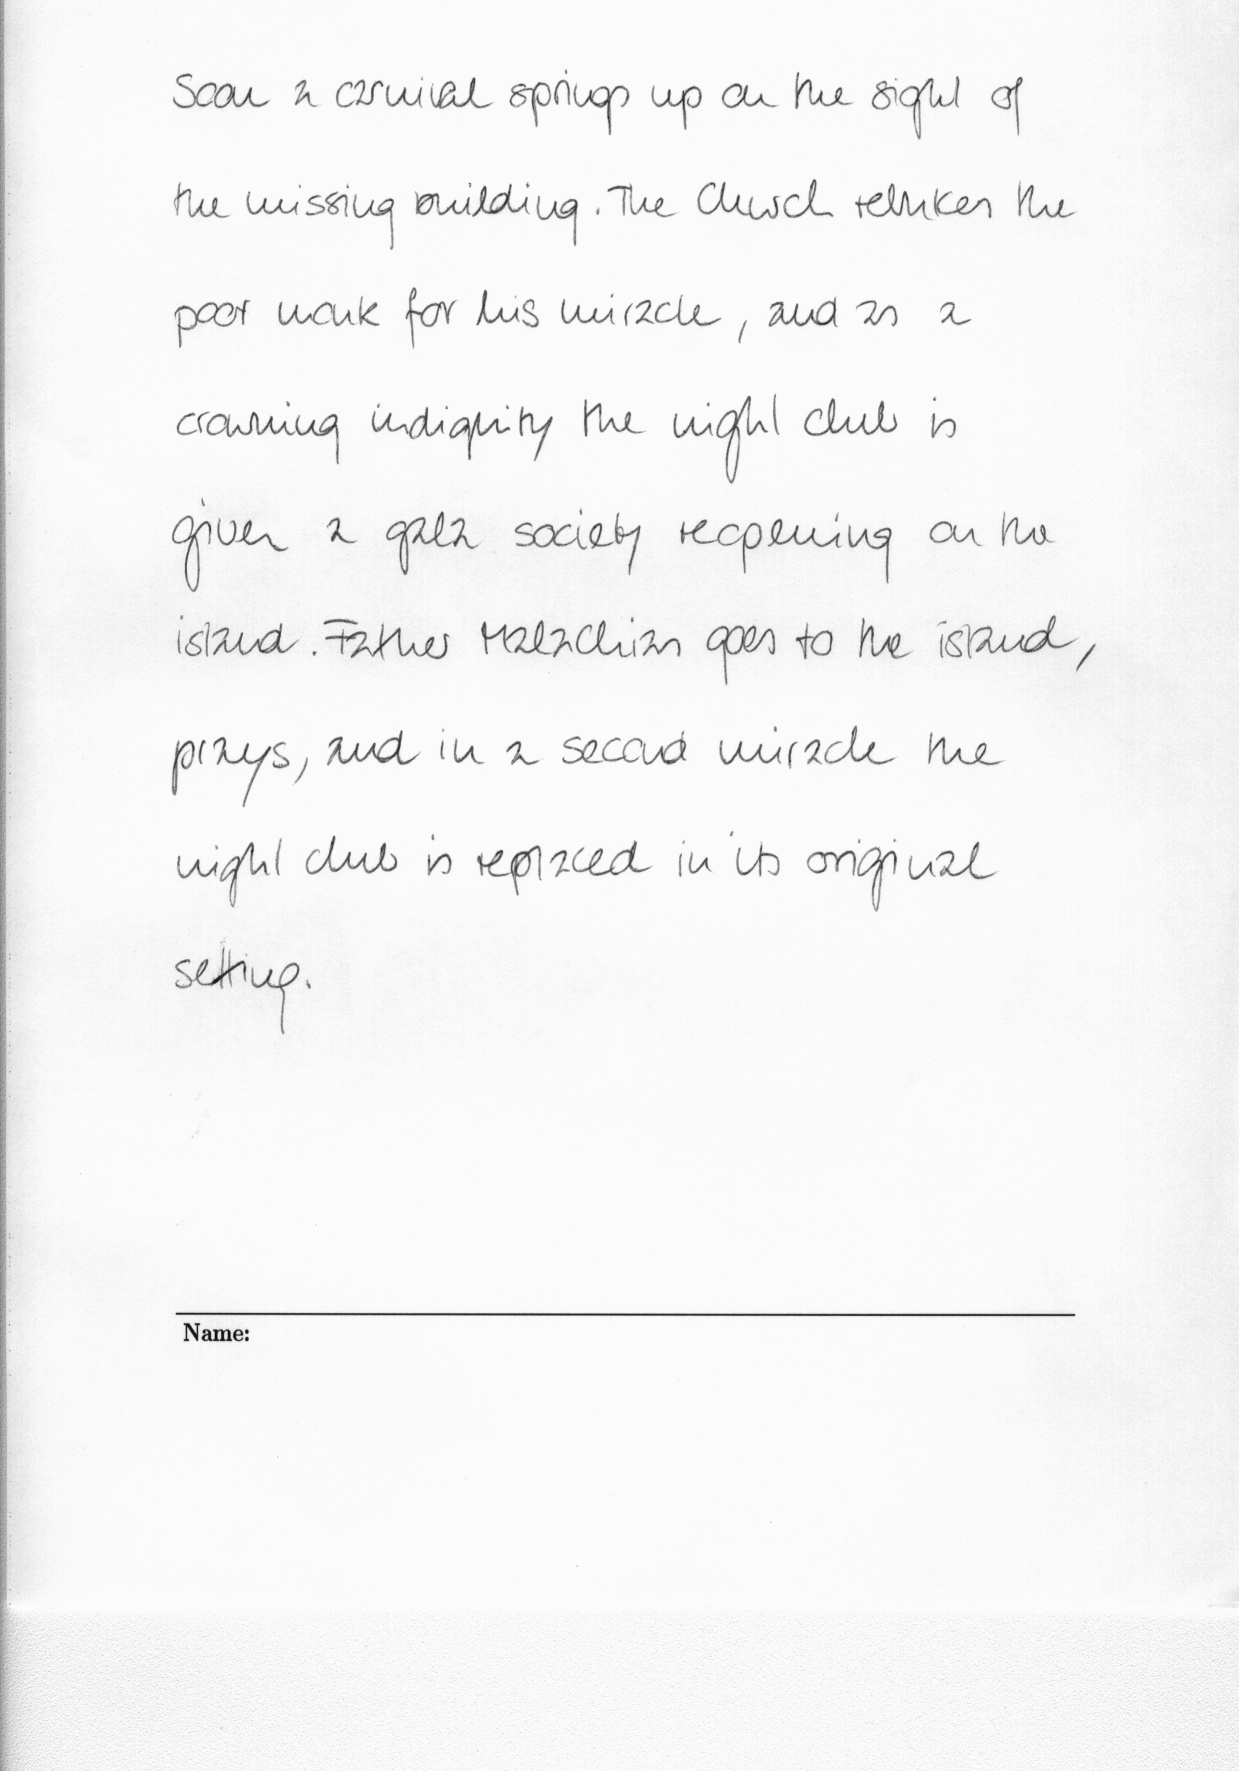 Soon a carnival springs up on the sight of
the missing building. The Church rebukes the
poor monk for his miracle, and as a
crowning indignity the night club is
given a gala society reopening on the
island. Father Malachias goes to the island,
prays, and in a second miracle the
night club is replaced in its original
setting.
Name: